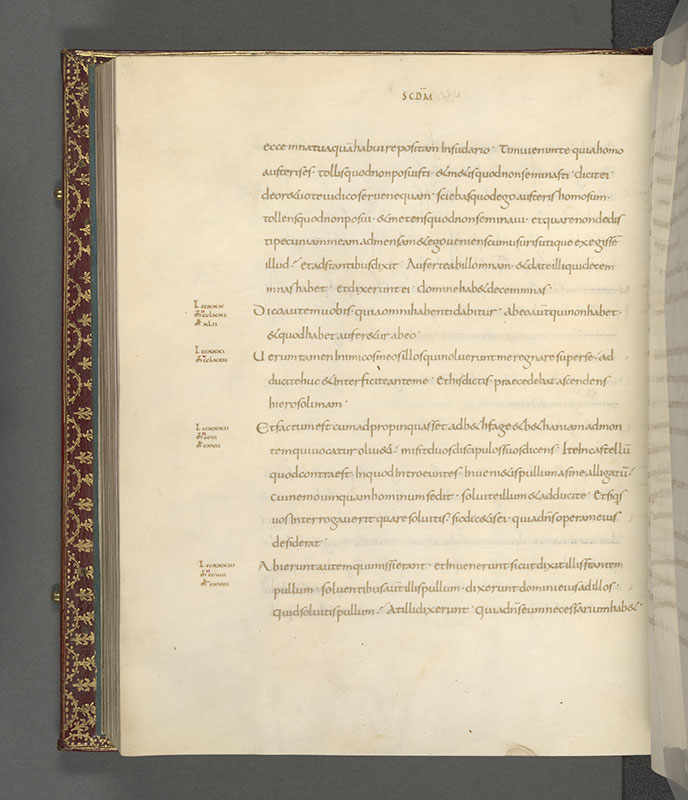 SCDM
ecce mna tua quā habui repositam in sudario · Timui enim te quia homo
austeris es · tollis quod non posuisti · & metis quod non seminasti · dicit ei
de ore tuo te iudico serue nequam · sciebas quod ego austeris homo sum ·
tollens quod non posui · & metens quod non seminaui · et quare non dedis
ti pecuniam meam ad mensam & ego ueniens cum usuris utique exegissē
illud · Et adstantibus dixit · Auferte ab illo mnam · & date illi qui decem
mnas habet · Et dixerunt ei · domine hab& decem mnas ·
Dico autem uobis · quia omni habenti dabitur · ab eo aūt qui non habet
& quod habet aufer&ur ab eo ·
Uerum tamen inimicos meos illos qui noluerunt me regnare super se · ad
ducite huc & interficite ante me · Et his dictis praecedebat ascendens
hierosolimam ·
Et factum est cum adpropinquass& ad b&hfage & b&haniam ad mon
tem qui uocatur oliu&i · misit duos discipulos suos dicens · Ite in castellū
quod contra est · In quod introeuntes · Inueni&is pullum asinę alligatū ·
cui nemo umquam hominum sedit · soluite illum & adducite · Et si qs
uos interrogauerit quare soluitis · sic dic&is ei · quia dn̄s operam eius
desiderat
Abierunt autem qui missi erant · et inuenerunt sicut dixit illis stantem
pullum · soluentibus aūt illis pullum · dixerunt domini eius ad illos ·
quid soluitis pullum · At illi dixerunt · quia dn̄s eum necessarium hab& ·